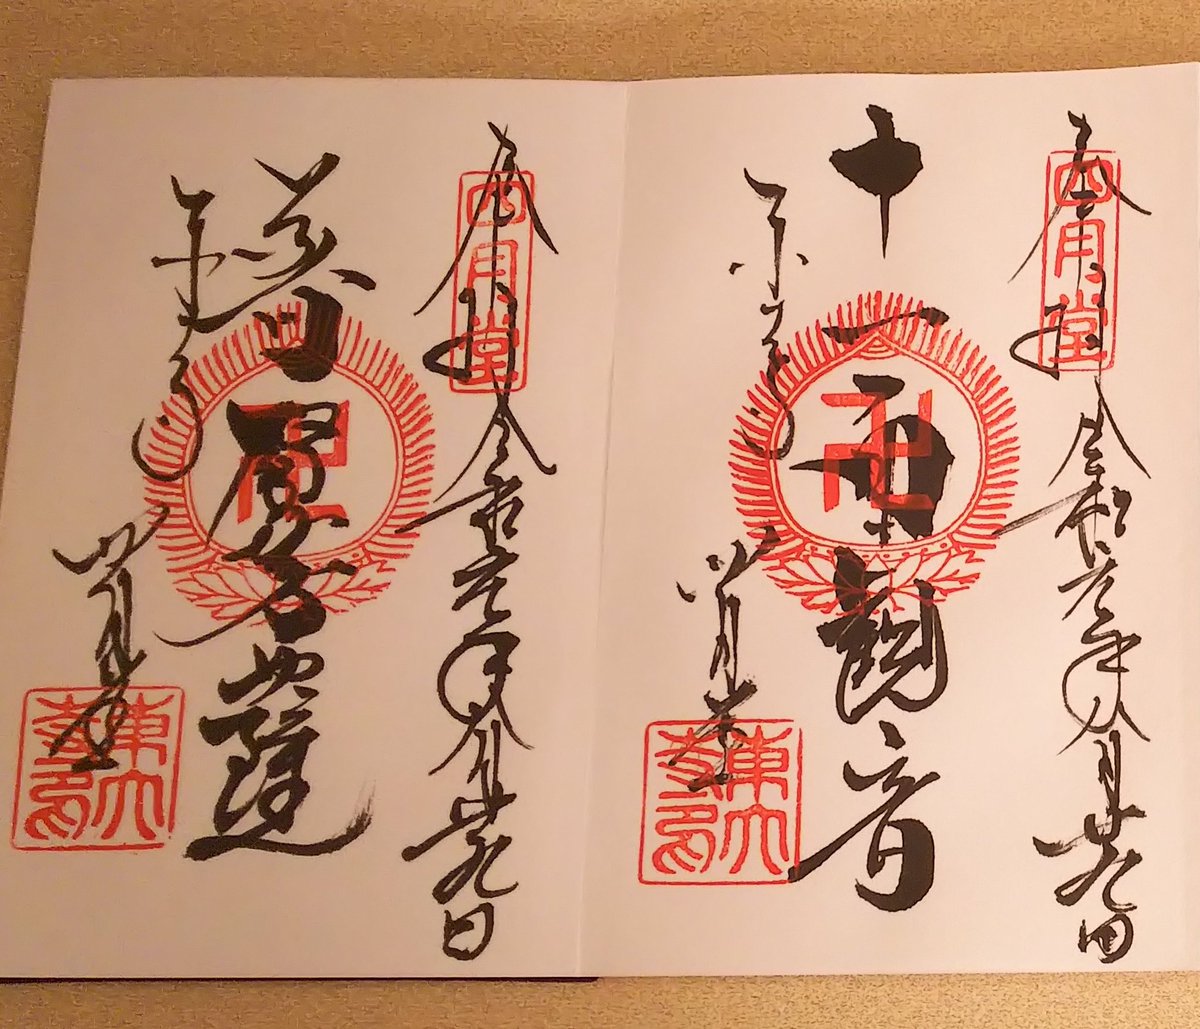 奉拝 令和元年八月廿九日
四月堂
十一面観音
東大寺
四月堂
奉拝 令和元年八月廿九日
四月堂
普賢菩薩
東大寺
四月堂